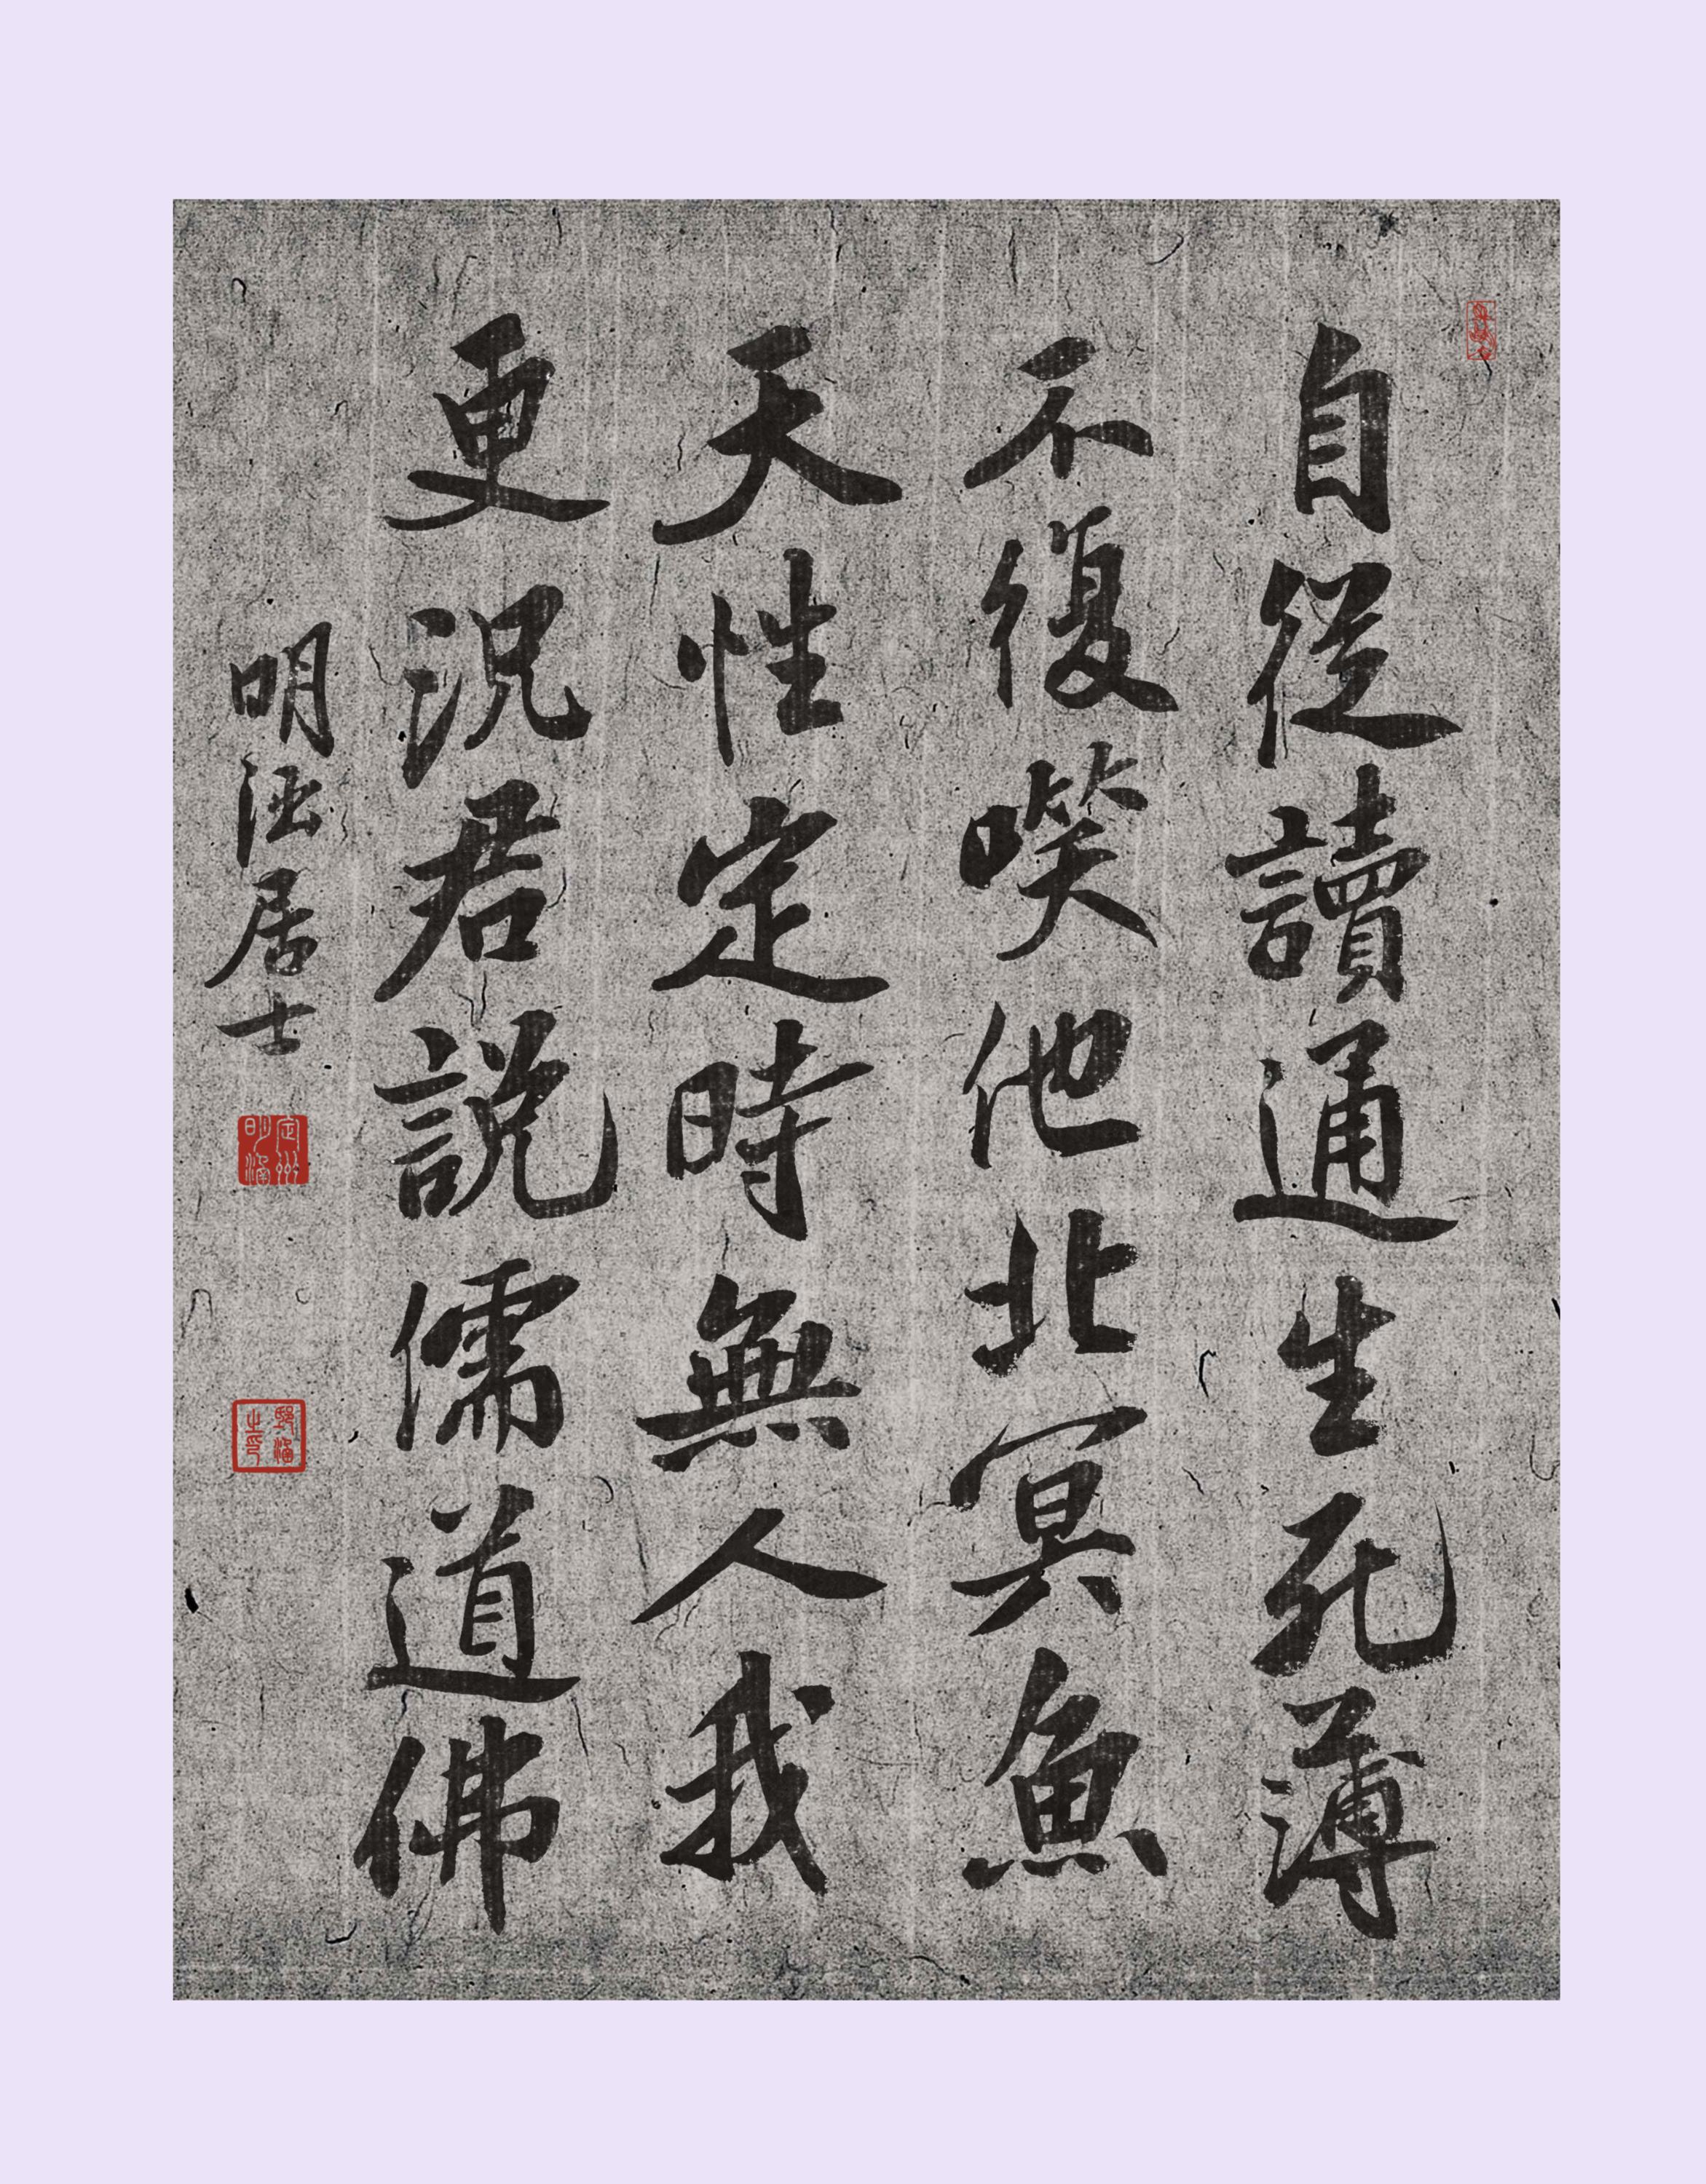 自從讀通生死薄
不復㗛他北冥魚
天性定時無人我
更況君說儒道佛
明涵居士
定州明涵